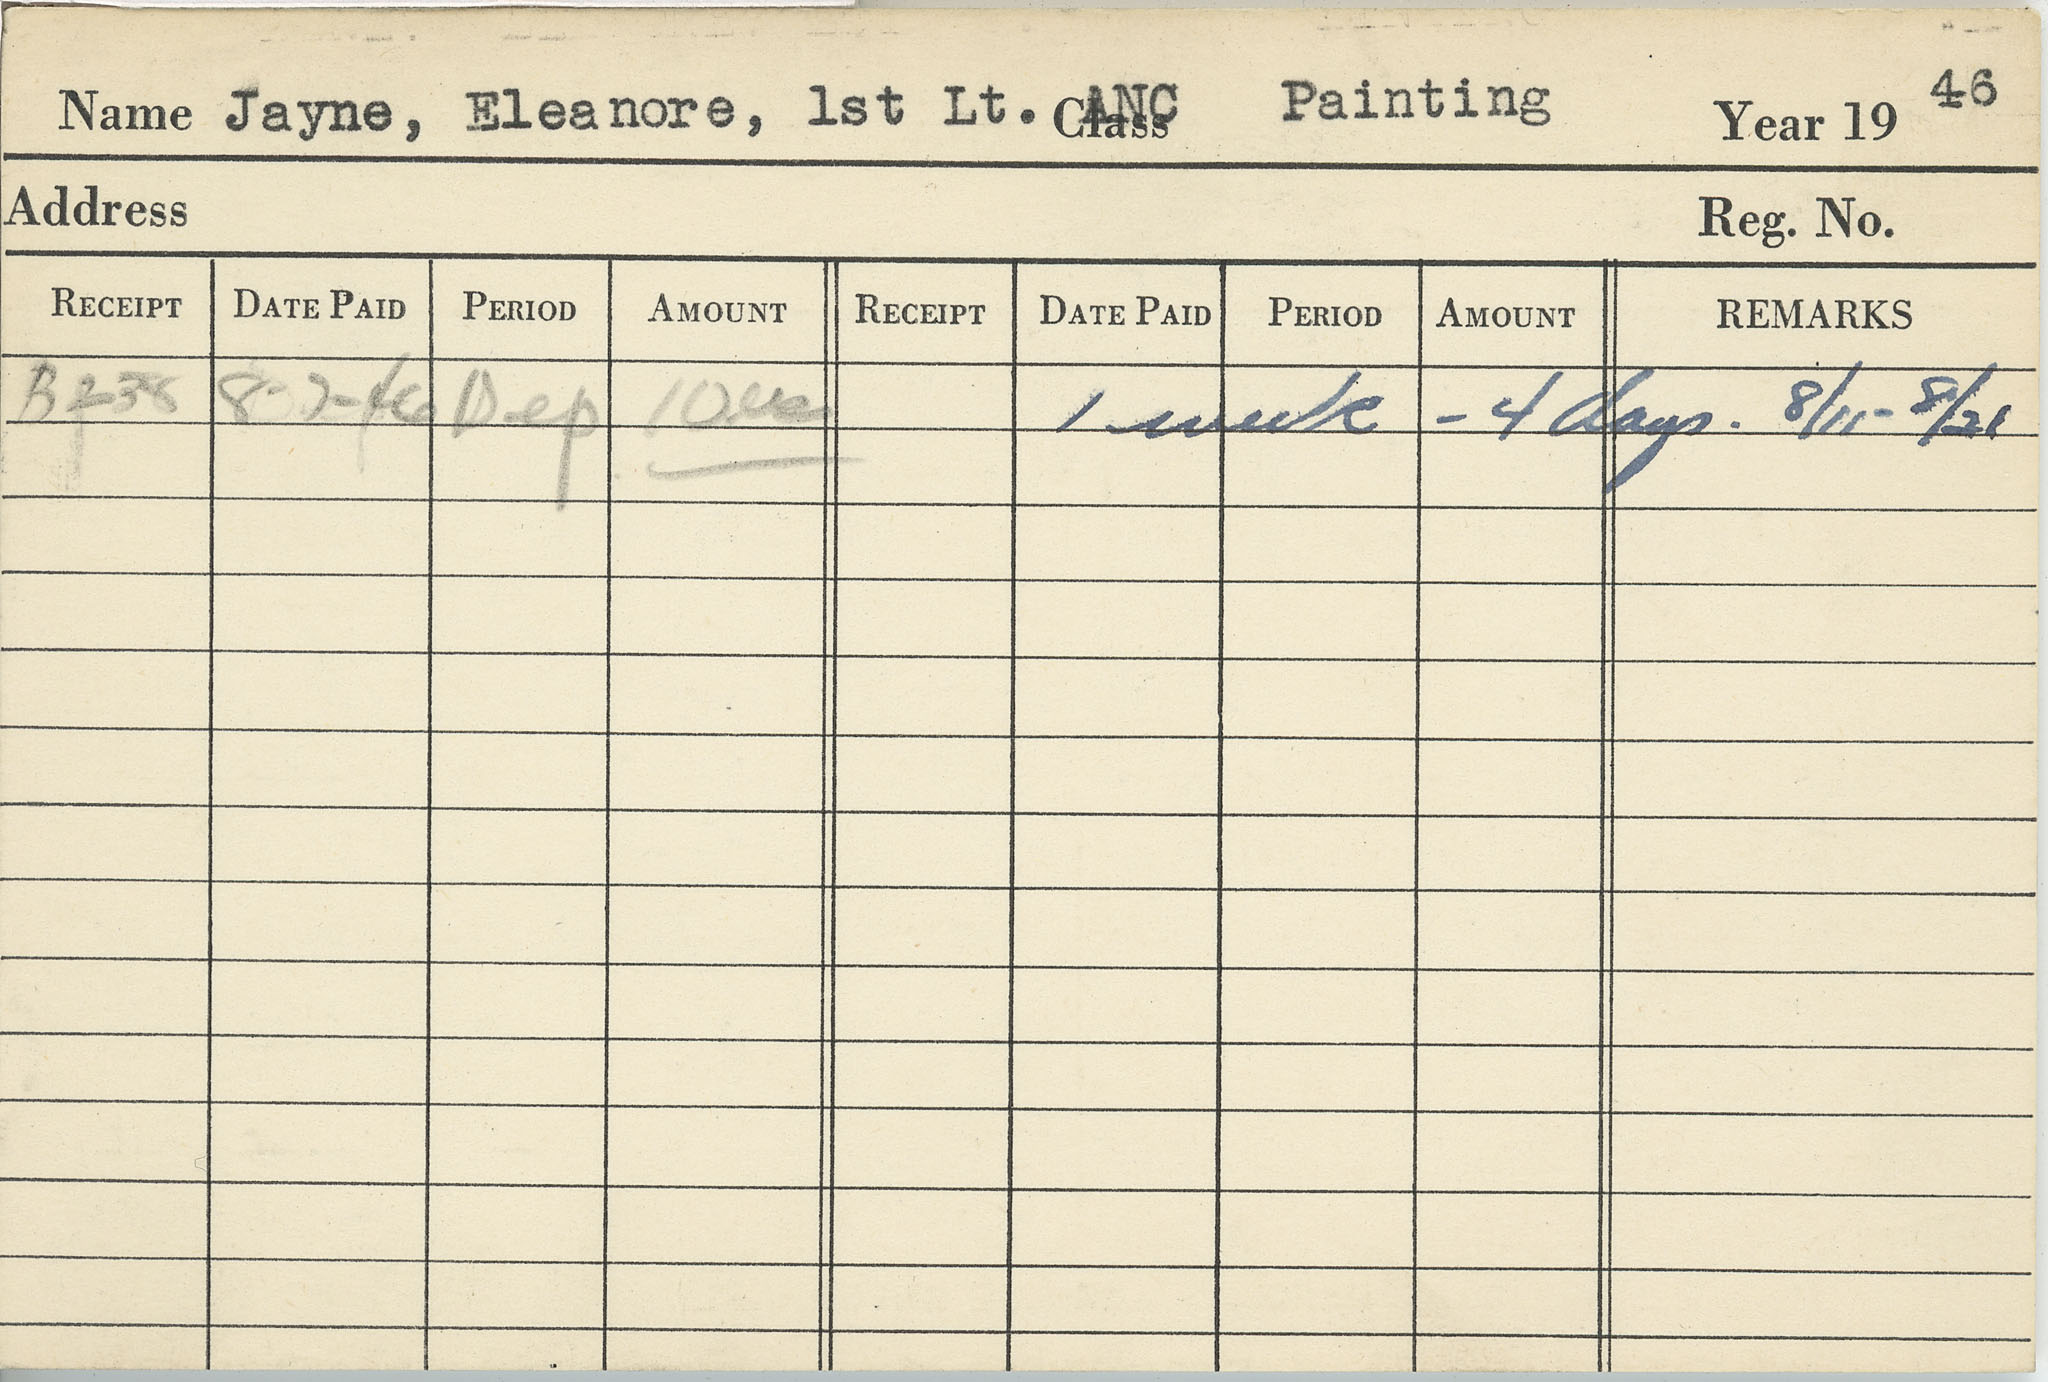 Name Jayne, Eleanore, 1st Lt. ANC Class Painting Year 19 46
Address Reg. No.
RECEIPT DATE PAID PERIOD AMOUNT RECEIPT DATE PAID PERIOD AMOUNT REMARKS
8-2-46 Dep. 1 week - 4 days. 8/11- 8/21